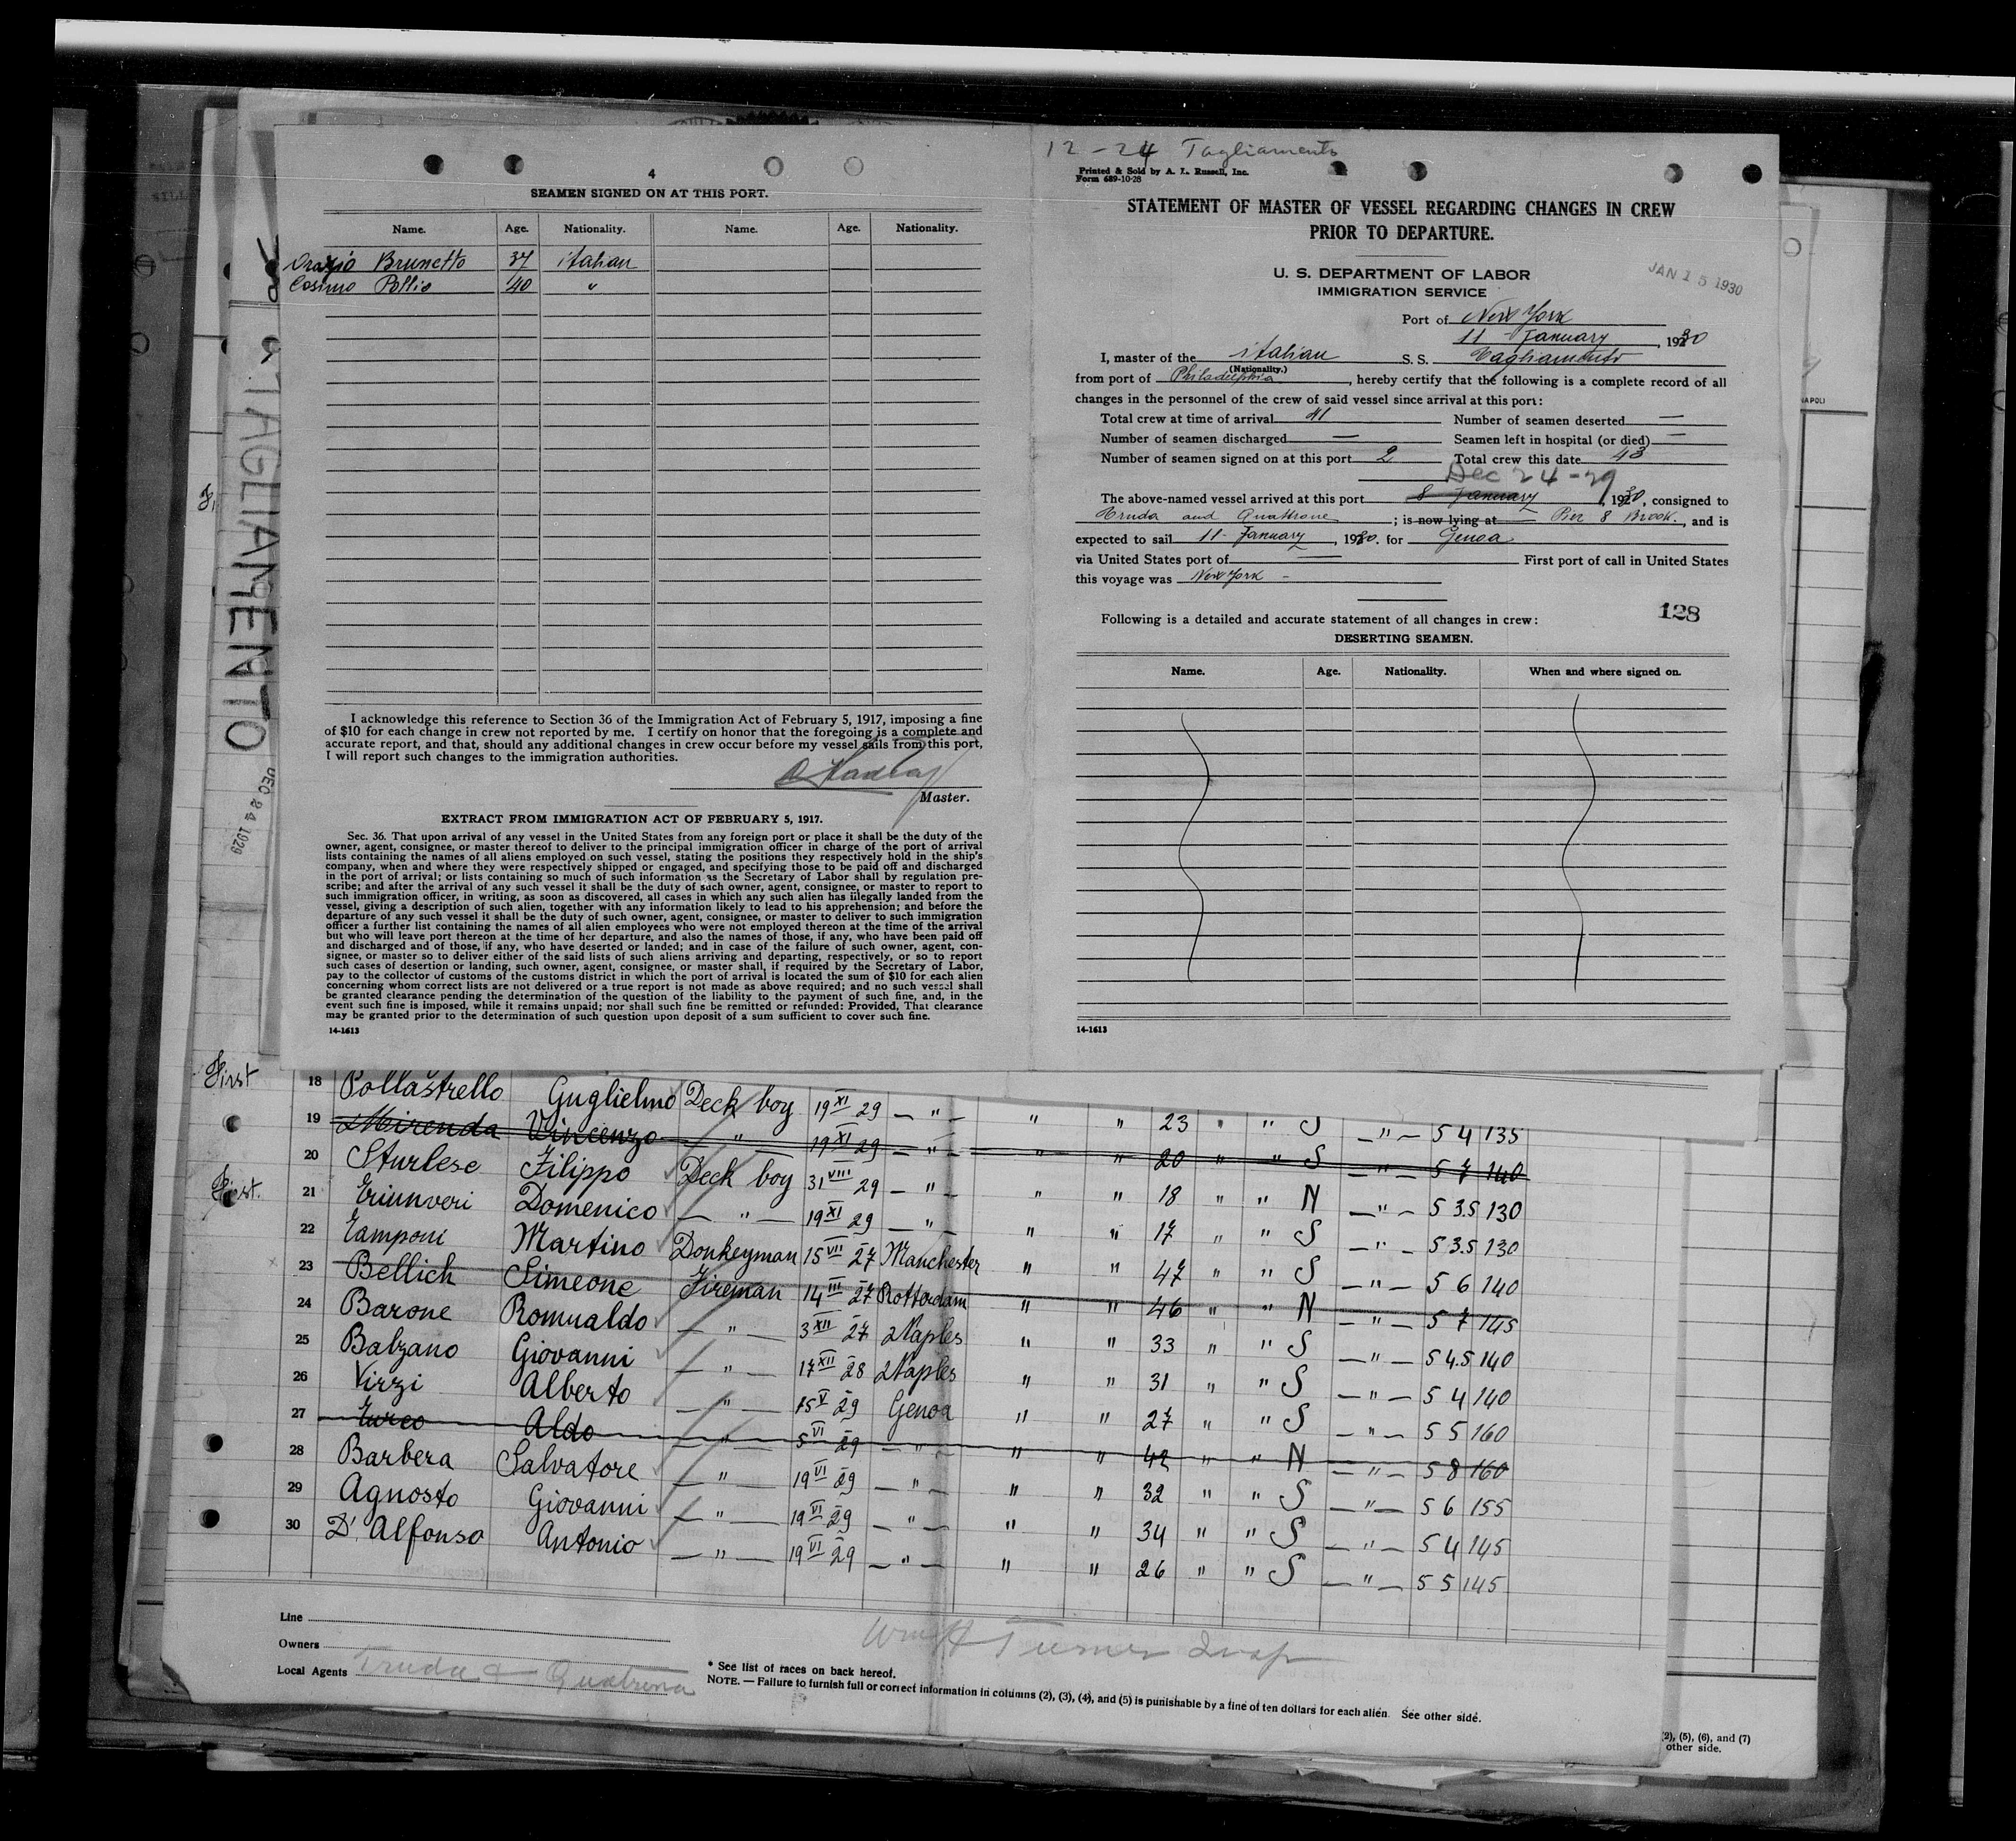 4
SEAMEN SIGNED ON AT THIS PORT.
Name. Age. Nationality. Name. Age. Nationality.
Orazio Brunetto 37 italian
Cosimo Pollio 40 "
I acknowledge this reference to Section 36 of the Immigration Act of February 5, 1917, imposing a fine
of $10 for each change in crew not reported by me. I certify on honor that the foregoing is a complete and
accurate report, and that, should any additional changes in crew occur before my vessel sails from this port,
I will report such changes to the immigration authorities.
Master.
EXTRACT FROM IMMIGRATION ACT OF FEBRUARY 5, 1917.
Sec. 36. That upon arrival of any vessel in the United States from any foreign port or place it shall be the duty of the
owner, agent, consignee, or master thereof to deliver to the principal immigration officer in charge of the port of arrival
lists containing the names of all aliens employed on such vessel, stating the positions they respectively hold in the ship's
company, when and where they were respectively shipped or engaged, and specifying those to be paid off and discharged
in the port of arrival; or lists containing so much of such information as the Secretary of Labor shall by regulation pre-
scribe; and after the arrival of any such vessel it shall be the duty of such owner, agent, consignee, or master to report to
such immigration officer, in writing, as soon as discovered, all cases in which any such alien has illegally landed from the
vessel, giving a description of such alien, together with any information likely to lead to his apprehension; and before the
departure of any such vessel it shall be the duty of such owner, agent, consignee, or master to deliver to such immigration
officer a further list containing the names of all alien employees who were not employed thereon at the time of the arrival
but who will leave port thereon at the time of her departure, and also the names of those, if any, who have been paid off
and discharged and of those, if any, who have deserted or landed; and in case of the failure of such owner, agent, con-
signee, or master so to deliver either of the said lists of such aliens arriving and departing, respectively, or so to report
such cases of desertion or landing, such owner, agent, consignee, or master shall, if required by the Secretary of Labor,
pay to the collector of customs of the customs district in which the port of arrival is located the sum of $10 for each alien
concerning whom correct lists are not delivered or a true report is not made as above required; and no such vessel shall
be granted clearance pending the determination of the question of the liability to the payment of such fine, and, in the
event such fine is imposed, while it remains unpaid; nor shall such fine be remitted or refunded: Provided, That clearance
may be granted prior to the determination of such question upon deposit of a sum sufficient to cover such fine.
14-1613
12-24 Tagliamento
Printed & Sold by A. L. Russell, Inc.
Form 689-10-28
STATEMENT OF MASTER OF VESSEL REGARDING CHANGES IN CREW
PRIOR TO DEPARTURE.
U. S. DEPARTMENT OF LABOR
IMMIGRATION SERVICE
JAN 15 1930
Port of New York
11 - January, 1930
I, master of the italian S. S. Tagliamento
(Nationality.)
from port of Philadelphia, hereby certify that the following is a complete record of all
changes in the personnel of the crew of said vessel since arrival at this port:
Total crew at time of arrival 41 Number of seamen deserted —
Number of seamen discharged — Seamen left in hospital (or died) —
Number of seamen signed on at this port 2 Total crew this date 43
Dec 24-29
The above-named vessel arrived at this port 8 January, 1930, consigned to
Truda and Quattrone; is now lying at Pier 8 Brook., and is
expected to sail 11 - January, 1930. for Genoa
via United States port of — First port of call in United States
this voyage was New York -
128
Following is a detailed and accurate statement of all changes in crew:
DESERTING SEAMEN.
Name. Age. Nationality. When and where signed on.
14-1613
TAGLIAMENTO
DEC 24 1929
NAPOLI
First 18 Pollastrello Guglielmo Deck boy 19 XI 29 — " — " " 23 " " S — " — 5 4 135
19 Mirenda Vincenzo " 19 XI 29 — " — " " 20 " " S — " — 5 7 140
20 Sturlese Filippo Deck boy 31 VIII 29 — " — " " 18 " " N — " — 5 3.5 130
First. 21 Domenico — " — 19 XI 29 — " — " " 17 " " S — " — 5 3.5 130
22 Tamponi Martino Donkeyman 15 VII 27 Manchester " " 47 " " S — " — 5 6 140
23 Bellich Simeone Fireman 14 III 27 Rotterdam " " 46 " " N — " — 5 7 145
24 Barone Romualdo — " — 3 XII 27 Naples " " 33 " " S — " — 5 4.5 140
25 Balzano Giovanni — " — 17 XII 28 Naples " " 31 " " S — " — 5 4 140
26 Virzi Alberto — " — 15 V 29 Genoa " " 27 " " S — " — 5 5 160
27 Turco Aldo — " — 5 VI 29 — " — " " 42 " " N — " — 5 8 160
28 Barbera Salvatore — " — 19 VI 29 — " — " " 32 " " S — " — 5 6 155
29 Agnosto Giovanni — " — 19 VI 29 — " — " " 34 " " S — " — 5 4 145
30 D'Alfonso Antonio — " — 19 VI 29 — " — " " 26 " " S — " — 5 5 145
Line
Owners
Local Agents Truda & Quatrona
Turner Insp
* See list of races on back hereof.
NOTE. — Failure to furnish full or correct information in columns (2), (3), (4), and (5) is punishable by a fine of ten dollars for each alien. See other side.
(2), (5), (6), and (7)
other side.